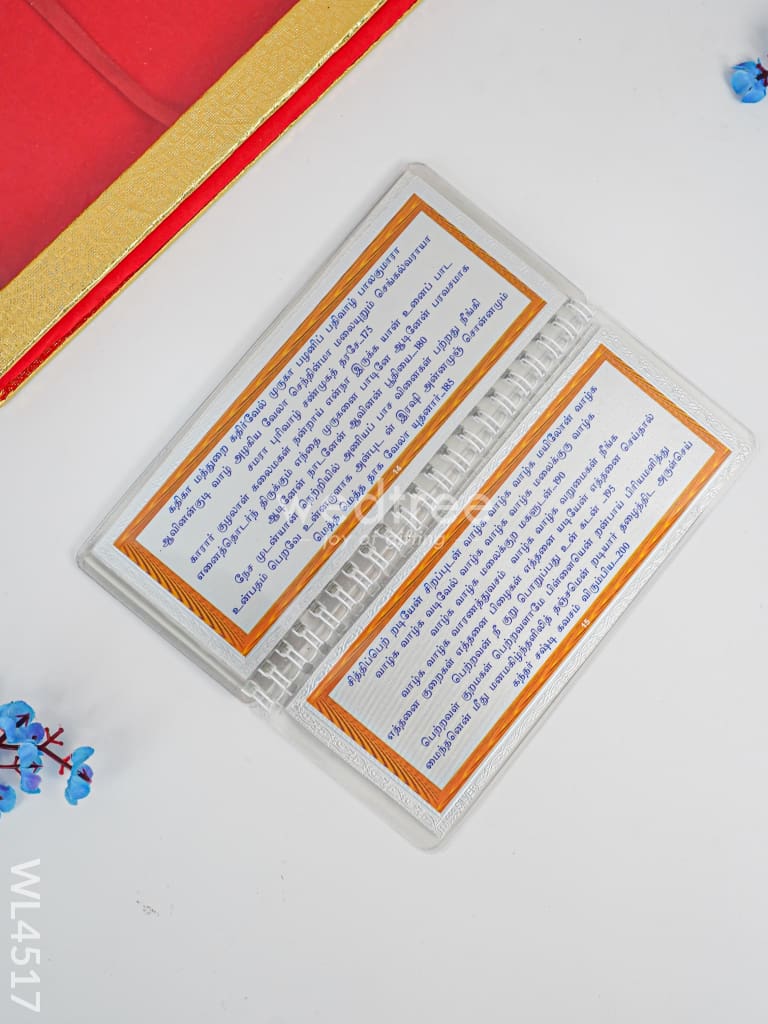 கதிகா மத்துறை கதிர்வேல் முருகா பழனிப் பதிவாழ் பாலகுமாரா
ஆவினன்குடி வாழ் அழகிய வேலா செந்தின்மா மலையுறும் செங்கல்வராயா
சமரா புரிவாழ் சண்முகத் தரசே_175
காரார் குழலாள் கலைமகள் நன்றாய் என்நா இருக்க யான் உனைப் பாட
எனைத்தொடர்ந் திருக்கும் எந்தை முருகனை பாடினே ஆடினேன் பரவசமாக
ஆடினேன் நாடினேன் ஆவினன் பூதியை_180
நேச முடன்யான் நெற்றியில் அணியப் பாச வினைகள் பற்றது நீங்கி
உன்பதம் பெறவே உன்னருளாக அன்புடன் இரஷி அன்னமுஞ் சொன்னமும்
மெத்த மெத்த தாக வேலா யுதனார்_185
14
wedtree
joy of gifting
சித்திப்பெற் றடியேன் சிறப்புடன் வாழ்க வாழ்க வாழ்க மயிலோன் வாழ்க
வாழ்க வாழ்க வடிவேல் வாழ்க வாழ்க வாழ்க மலைக்குரு வாழ்க
வாழ்க வாழ்க மலைக்குற மகளுடன்_190
வாழ்க வாழ்க வாரணத்துவசம் வாழ்க வாழ்க வறுமைகள் நீங்க
எத்தனை குறைகள் எத்தனை பிழைகள் எத்தனை யடியேன் எத்தனை செய்தால்
பெற்றவன் நீ குறு பொறுப்பது உன் கடன்_195
பெற்றவள் குறமகள் பெற்றவளாமே பிள்ளையென் றன்பாய் பிரியமளித்து
மைந்தனென் மீது மனமகிழ்ந்தளிலித் தஞ்சமென் றடியார் தழைத்திட அருள்செய்
கந்தர் சஷ்டி கவசம் விரும்பிய_200
15
WL4517